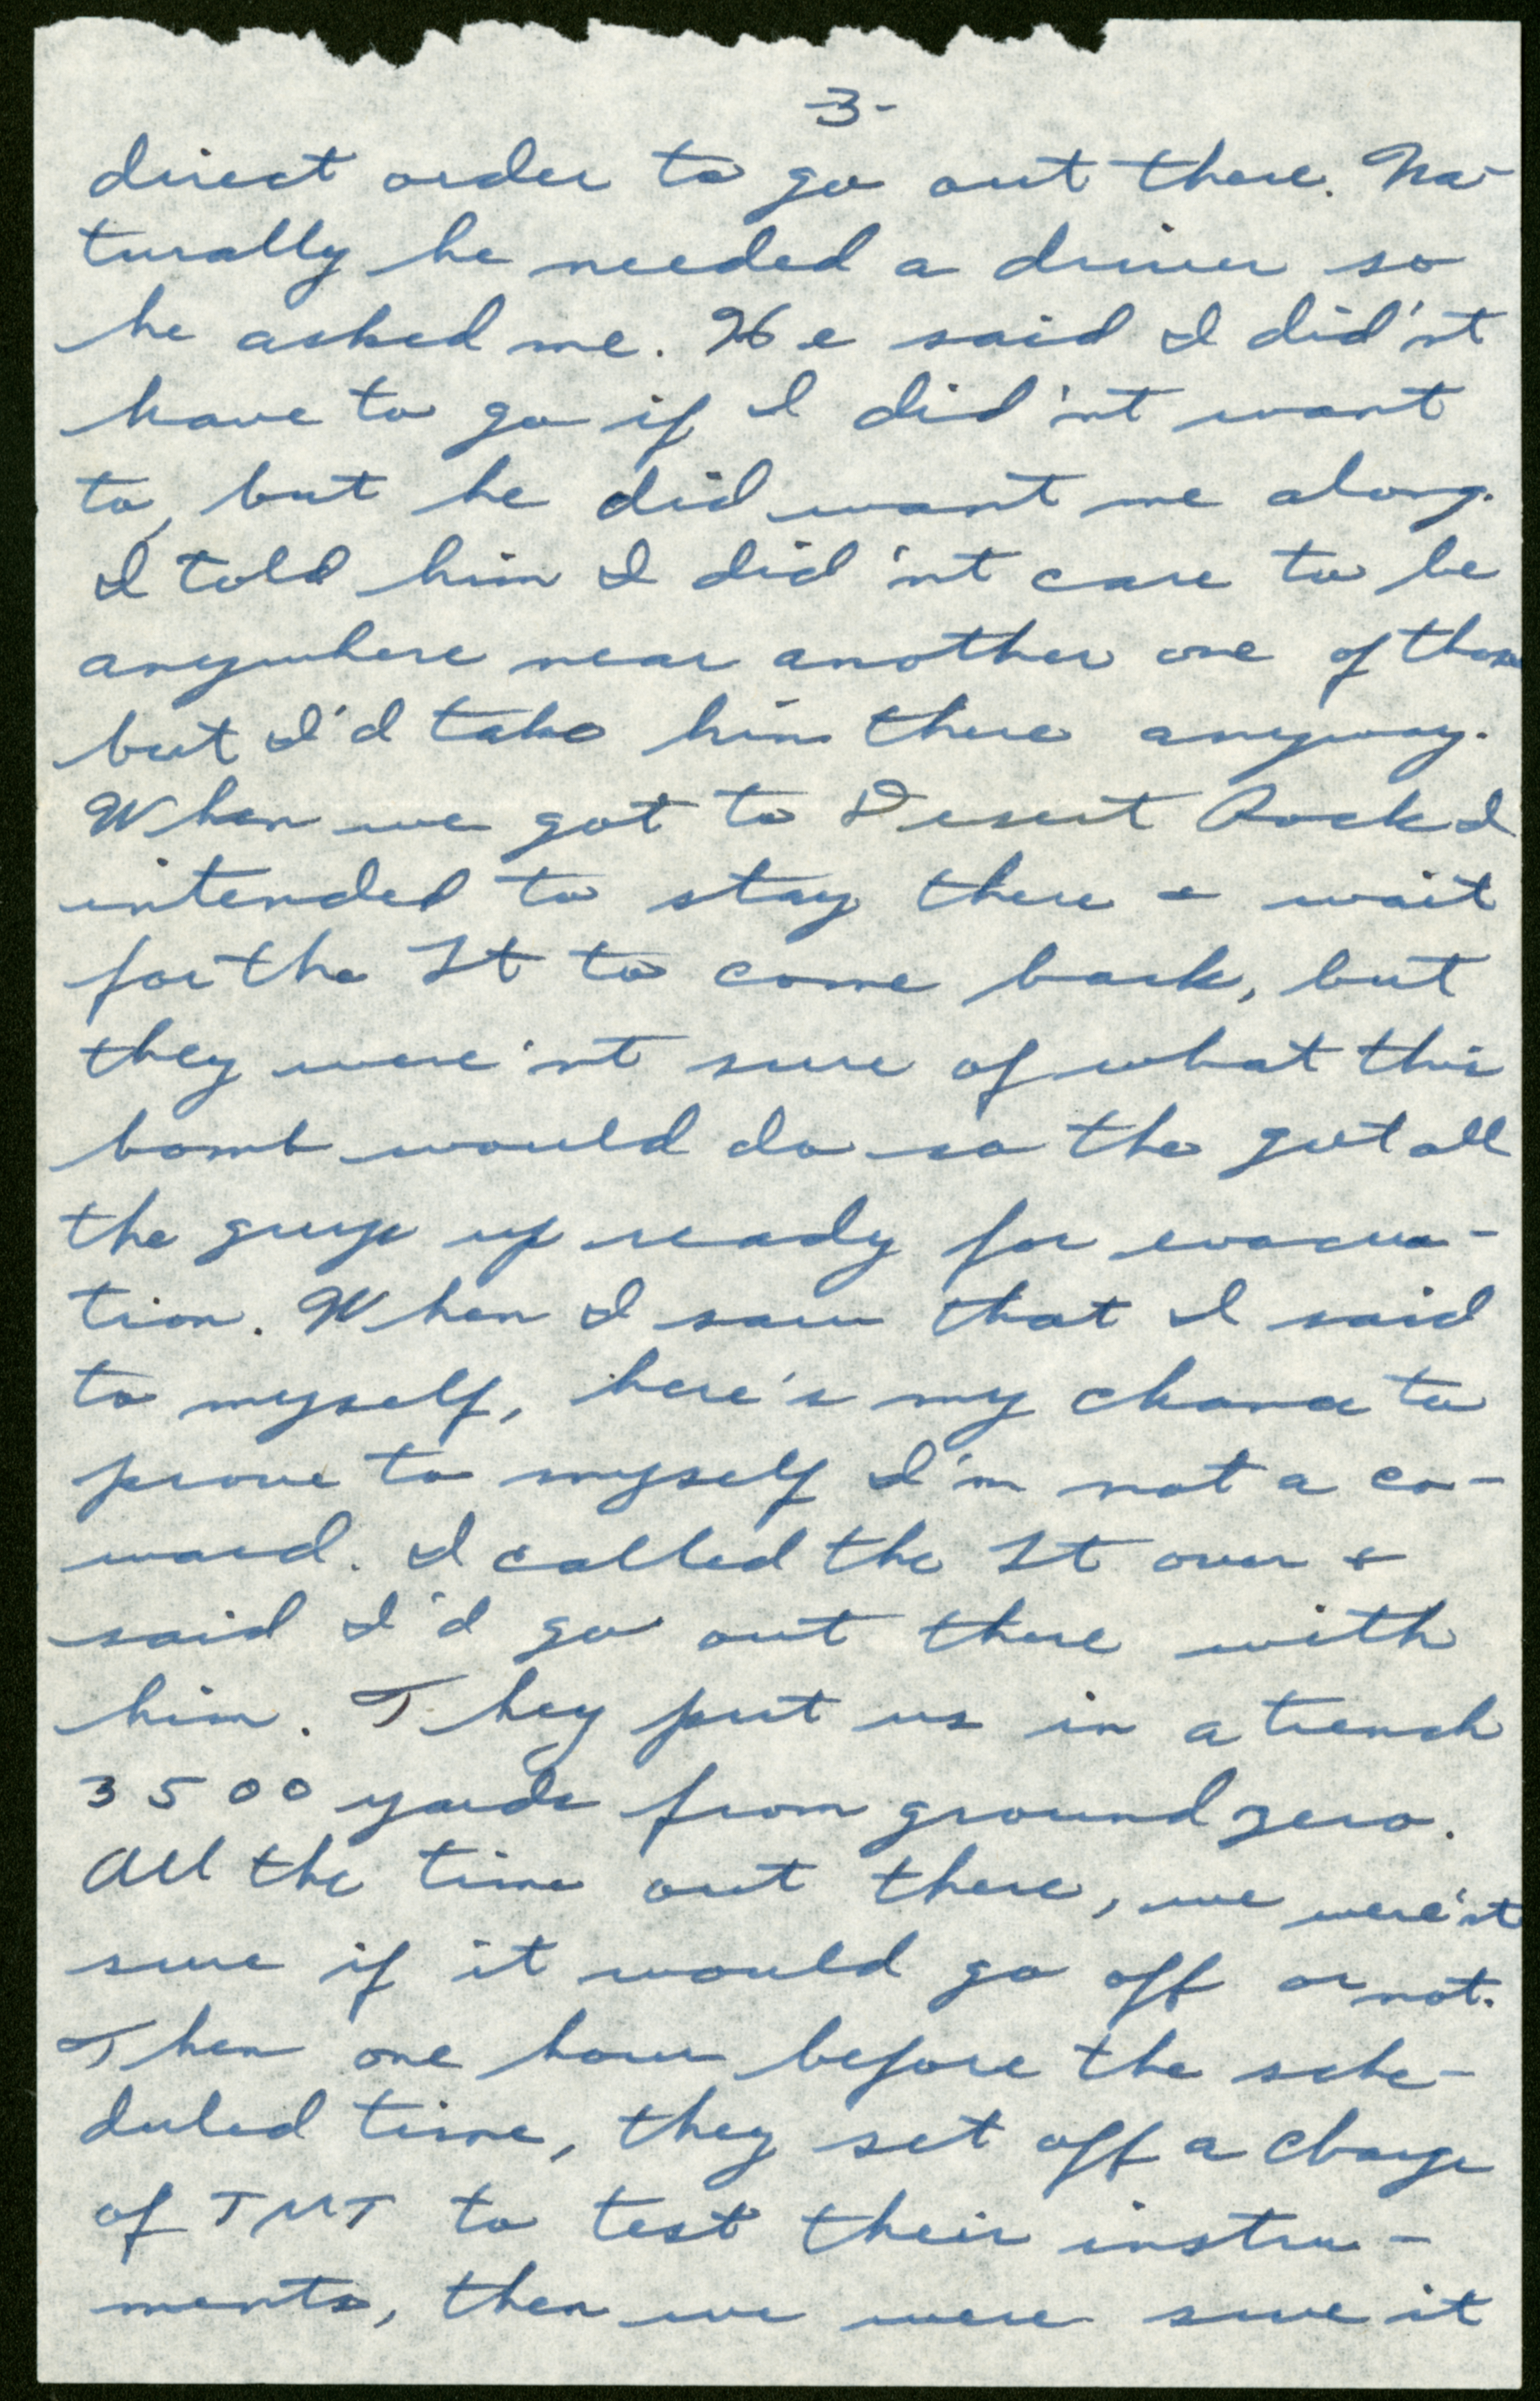 -3-
direct order to go out there. Na-
turally he needed a driver so
he asked me. He said I did'nt
have to go if I did'nt want
to, but he did want me along.
I told him I did'nt care to be
anywhere near another one of those
but I'd take him there anyway.
When we got to Desert Rock I
intended to stay there & wait
for the Lt to come back, but
they were'nt sure of what this
bomb would do so the got all
the guys up ready for evacua-
tion. When I saw that I said
to myself, here's my chance to
prove to myself I'm not a co-
ward. I called the Lt over &
said I'd go out there with
him. They put us in a trench
3500 yards from ground zero.
All the time out there, we were'nt
sure if it would go off or not.
Then one hour before the sche-
duled time, they set off a charge
of TNT to test their instru-
ments, then we were sure it